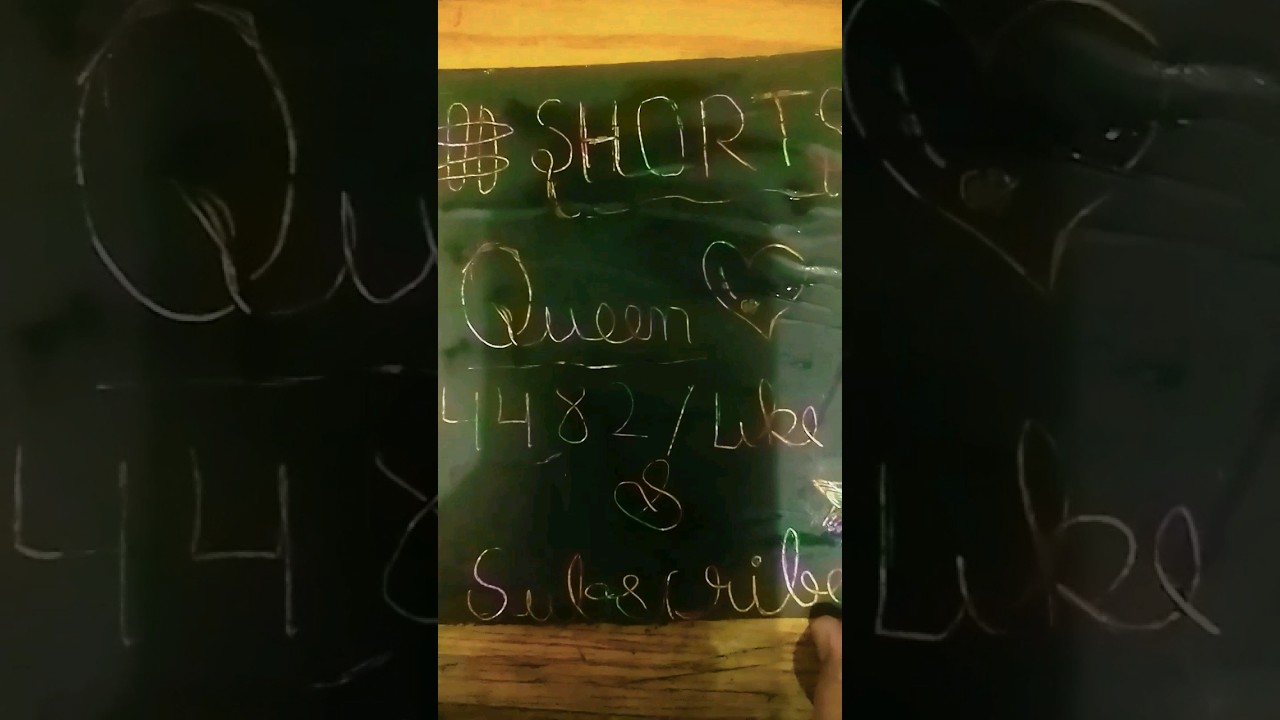 #SHORTS
Queen
4482/Like
&
Subscribe